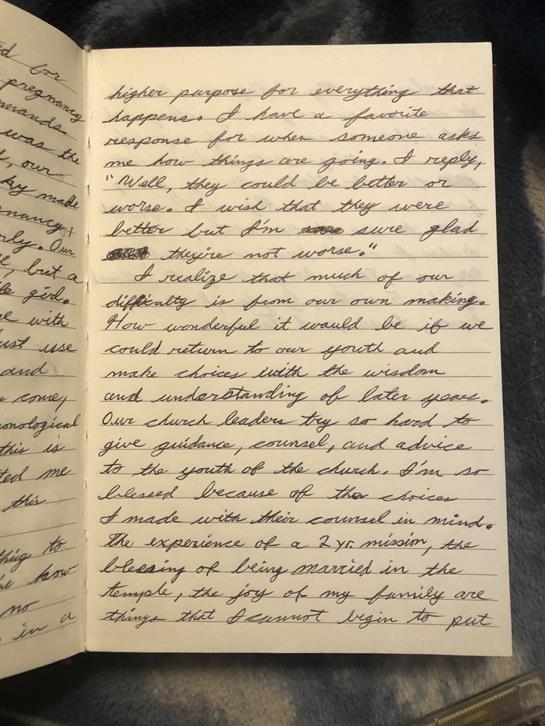 ed for
pregnancy
was the
, our
ky made
nancy +
rly. Our
, but a
girl.
e with
ust use
and
come,
onological
this is
ted me
this
thing to
how
no
in a
higher purpose for everything that
happens. I have a favorite
response for when someone asks
me how things are going. I reply,
"Well, they could be better or
worse. I wish that they were
better but I'm sure glad
they're not worse."
I realize that much of our
difficulty is from our own making.
How wonderful it would be if we
could return to our youth and
make choices with the wisdom
and understanding of later years.
Our church leaders try so hard to
give guidance, counsel, and advice
to the youth of the church. I'm so
blessed because of the choices
I made with their counsel in mind.
The experience of a 2 yr. mission, the
blessing of being married in the
temple, the joy of my family are
things that I cannot begin to put